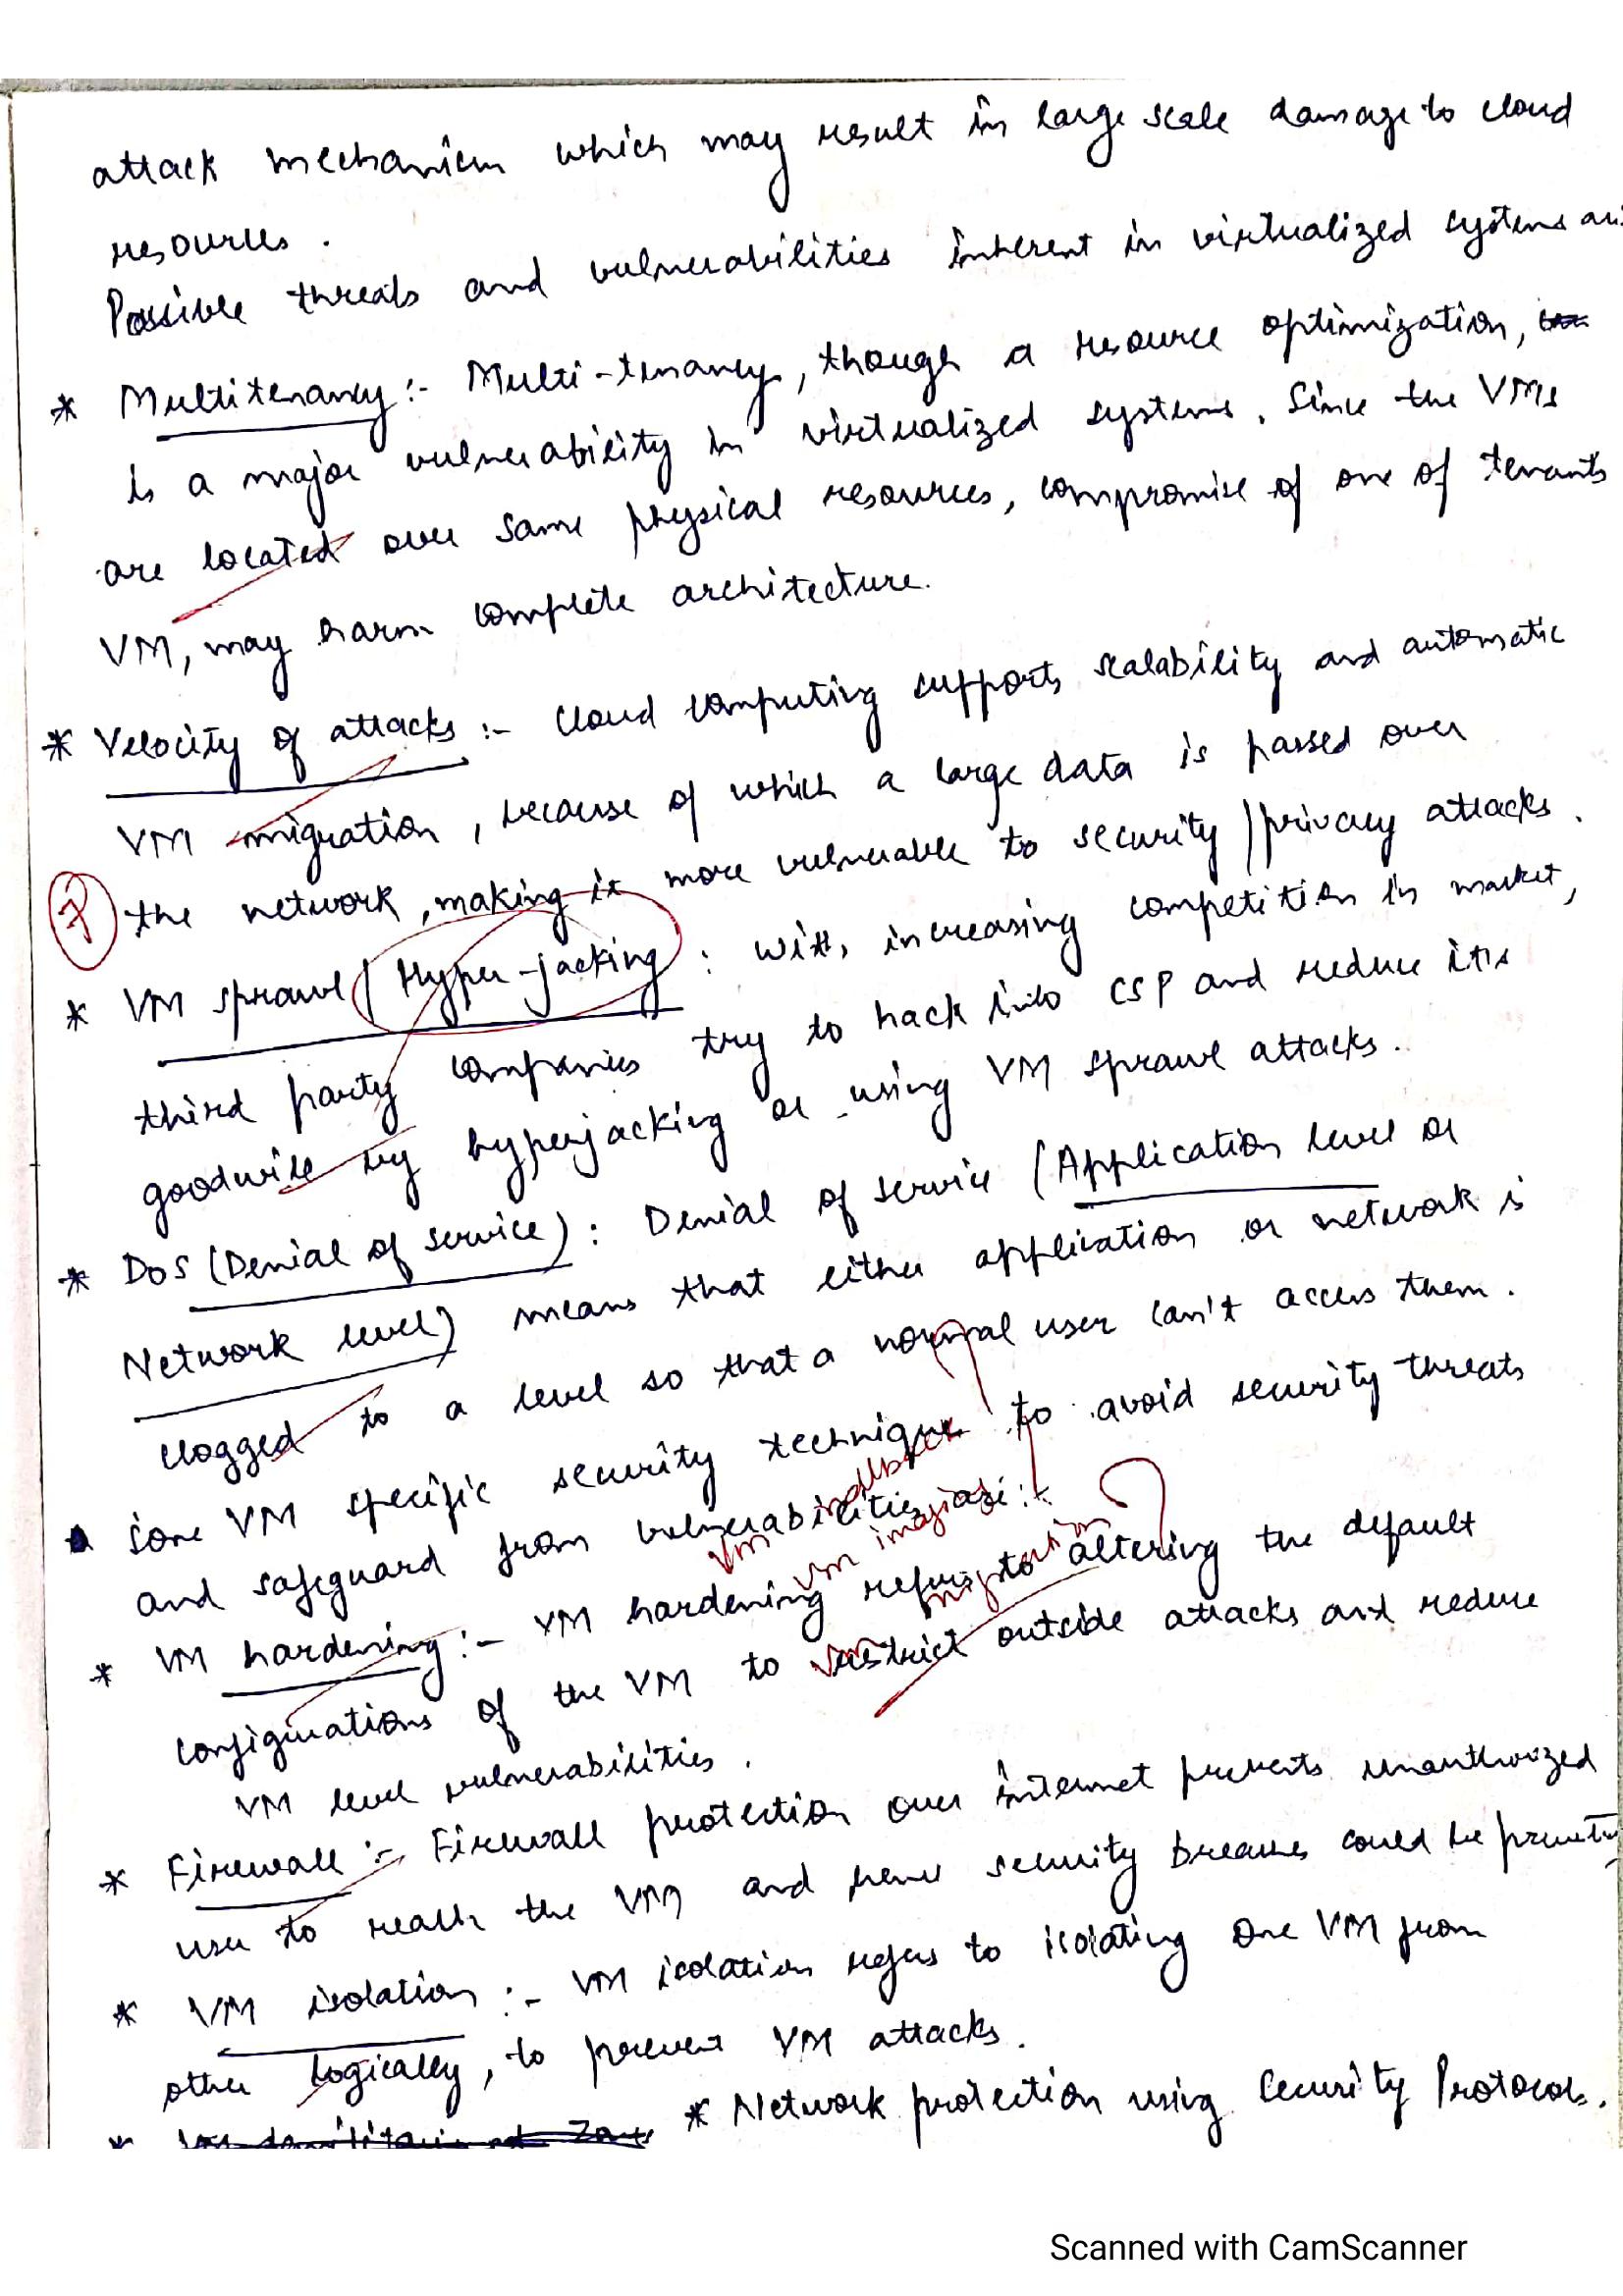 attack mechanism which may result in large scale damage to cloud
resources.
Possible threats and vulnerabilities inherent in virtualized systems
* Multitenancy :- Multi-tenancy, though a resource optimization,
is a major vulnerability in virtualized systems. Since the VMs
are located over same physical resources, compromise of one of tenants
VM, may harm complete architecture.
* Velocity of attacks :- Cloud computing supports scalability and automatic
VM migration, because of which a large data is passed over
the network, making it more vulnerable to security/privacy attacks.
* VM sprawl/Hyper-jacking : With increasing competition in market,
third party companies try to hack into CSP and reduce its
goodwill by hyperjacking or using VM sprawl attacks.
* DoS (Denial of service) : Denial of service (Application level or
Network level) means that either application or network is
clogged to a level so that a normal user can't access them.
Some VM specific security technique to avoid security threats
and safeguard from vulnerabilities are :-
VM rollback
VM imaging
VM migration
?
* VM hardening :- VM hardening refers to altering the default
configurations of the VM to restrict outside attacks and reduce
VM level vulnerabilities.
* Firewall :- Firewall protection over internet prevents unauthorized
user to reach the VM and hence security breaches could be
* VM isolation :- VM isolation refers to isolating one VM from
other logically, to prevent VM attacks.
* Network protection using Security Protocols.
Scanned with CamScanner